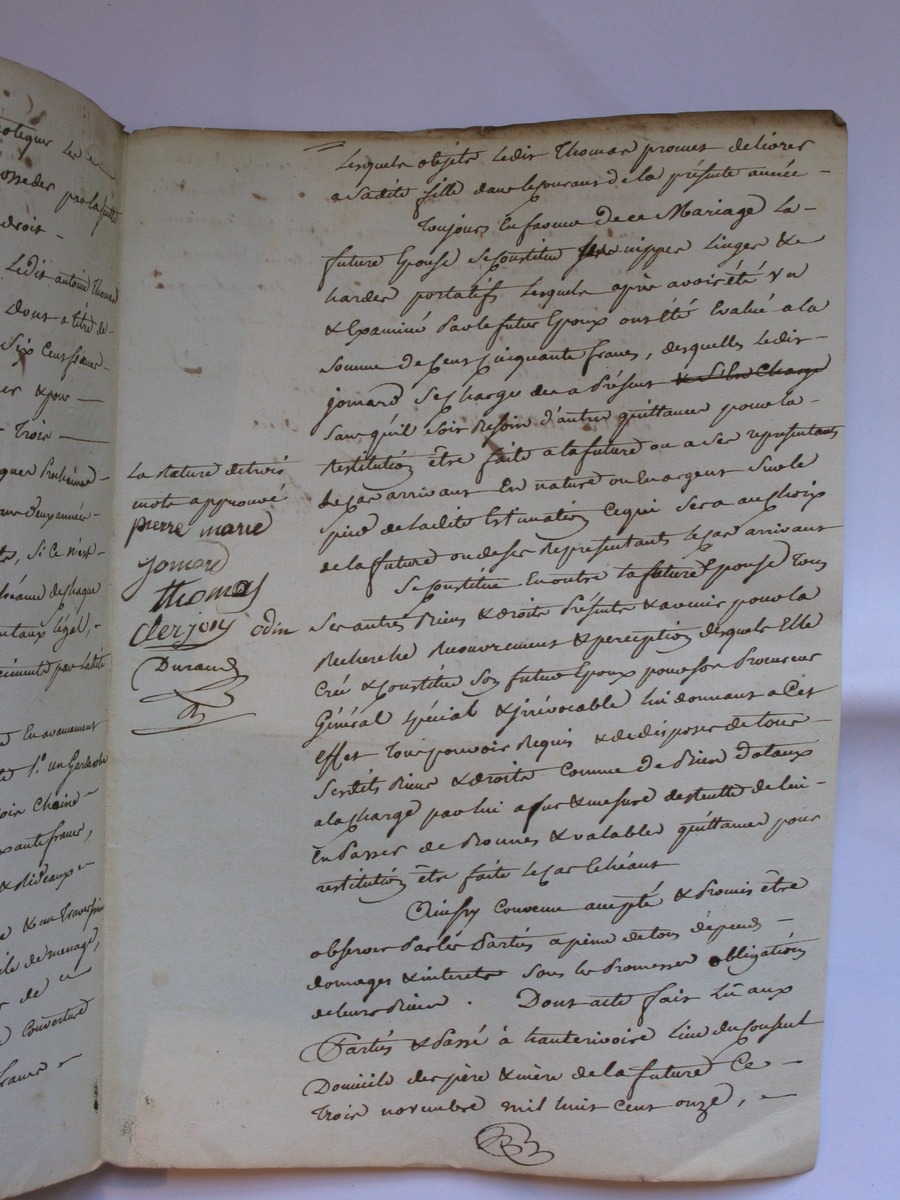 Lesquels objets Ledit Thomas promet delivrer
a Sadite fille dans le courant de la présente année -
Toujours en faveur de ce Mariage La -
future Epouse Se Constitue nippes Linges & e
hardes portatifs Lesquels après avoir été Vu
& Examiné Par le futur Epoux ont été Evalué a la
Somme de Cent Cinquante francs, desquelles Ledit -
jomard Se charge des a Présent & S'En Charge
Sans qu'il Soit Besoin d'autres quittances pour la -
Restitution être faite a la future ou a Ses representants
Le Cas arrivant En nature ou En argent Sur le
pied de la dite Estimation Ce qui Sera au choix
de la future ou de Ses Representants le Cas arrivant
Se Constitue En outre La future Epouse Tous
Ses autres Biens & droits Présents & avenir pour la
Recherche Recouvrement & perception desquels Elle
Crée & Constitue Son futur Epoux pour Son Procureur
Général Spécial & irrévocable Lui donnant a Cet
Effet Tous pouvoir Requis & de disposer de tous -
Sesdits Biens & droits Comme de Biens dotaux
a la charge par lui a fur & mesure des de Lui -
En Passer de Bonnes & valables quittances pour
restitution être faite le Cas Echéant
Ainsy Convenu accepté & Promis être
observer Par les Parties a peine de tous dépens -
domages & interets Sous les Promesses obligations
de leurs Biens . Dont acte fait Lû aux
Parties & Passé à hauterivoire Lieu du
Domicile des père & mère de la future Ce -
Trois novembre mil huit Cent onze, -
La rature de trois
mots approuvé
pierre marie
jomard
thomas
clerjon odin
Durand
otequer Les
osseder par la
droit -
Ledit antoine Thomas
Dont a titre de -
Six Cent francs -
& pour -
Trois -
Prochaine -
année -
Si Ce n'est -
de chaque
taux légal, -
par ladite
En avancement
Sr. un Garderobe
francs,
& Rideaux -
& un Traversin
de menage,
de -
Couverture
francs -